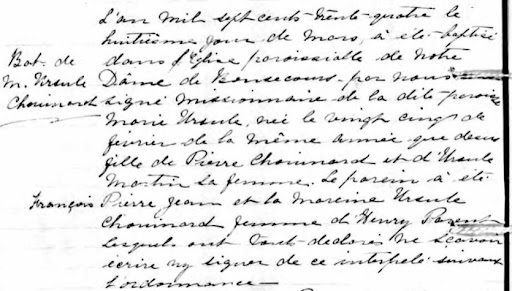 L'an mil sept cents trente-quatre le
huitième jour de mars, a été baptisé
Bat. de dans l'Eglise paroissialle de Notre
M. Ursule Dâme de Bonsecours par nous
Chouinard signé missionnaire de la dite paroisse
Marie Ursule, née le vingt cinq de
février de la même année que dessus
fille de Pierre Chouinard et d'Ursule
Martin sa femme. Le parein a été
François Pierre Jean et la mareine Ursule
Chouinard femme d'Henry Parent
lesquels ont déclaré ne scavoir
écrire ny signer de ce interpelé suivant
l'ordonnance —